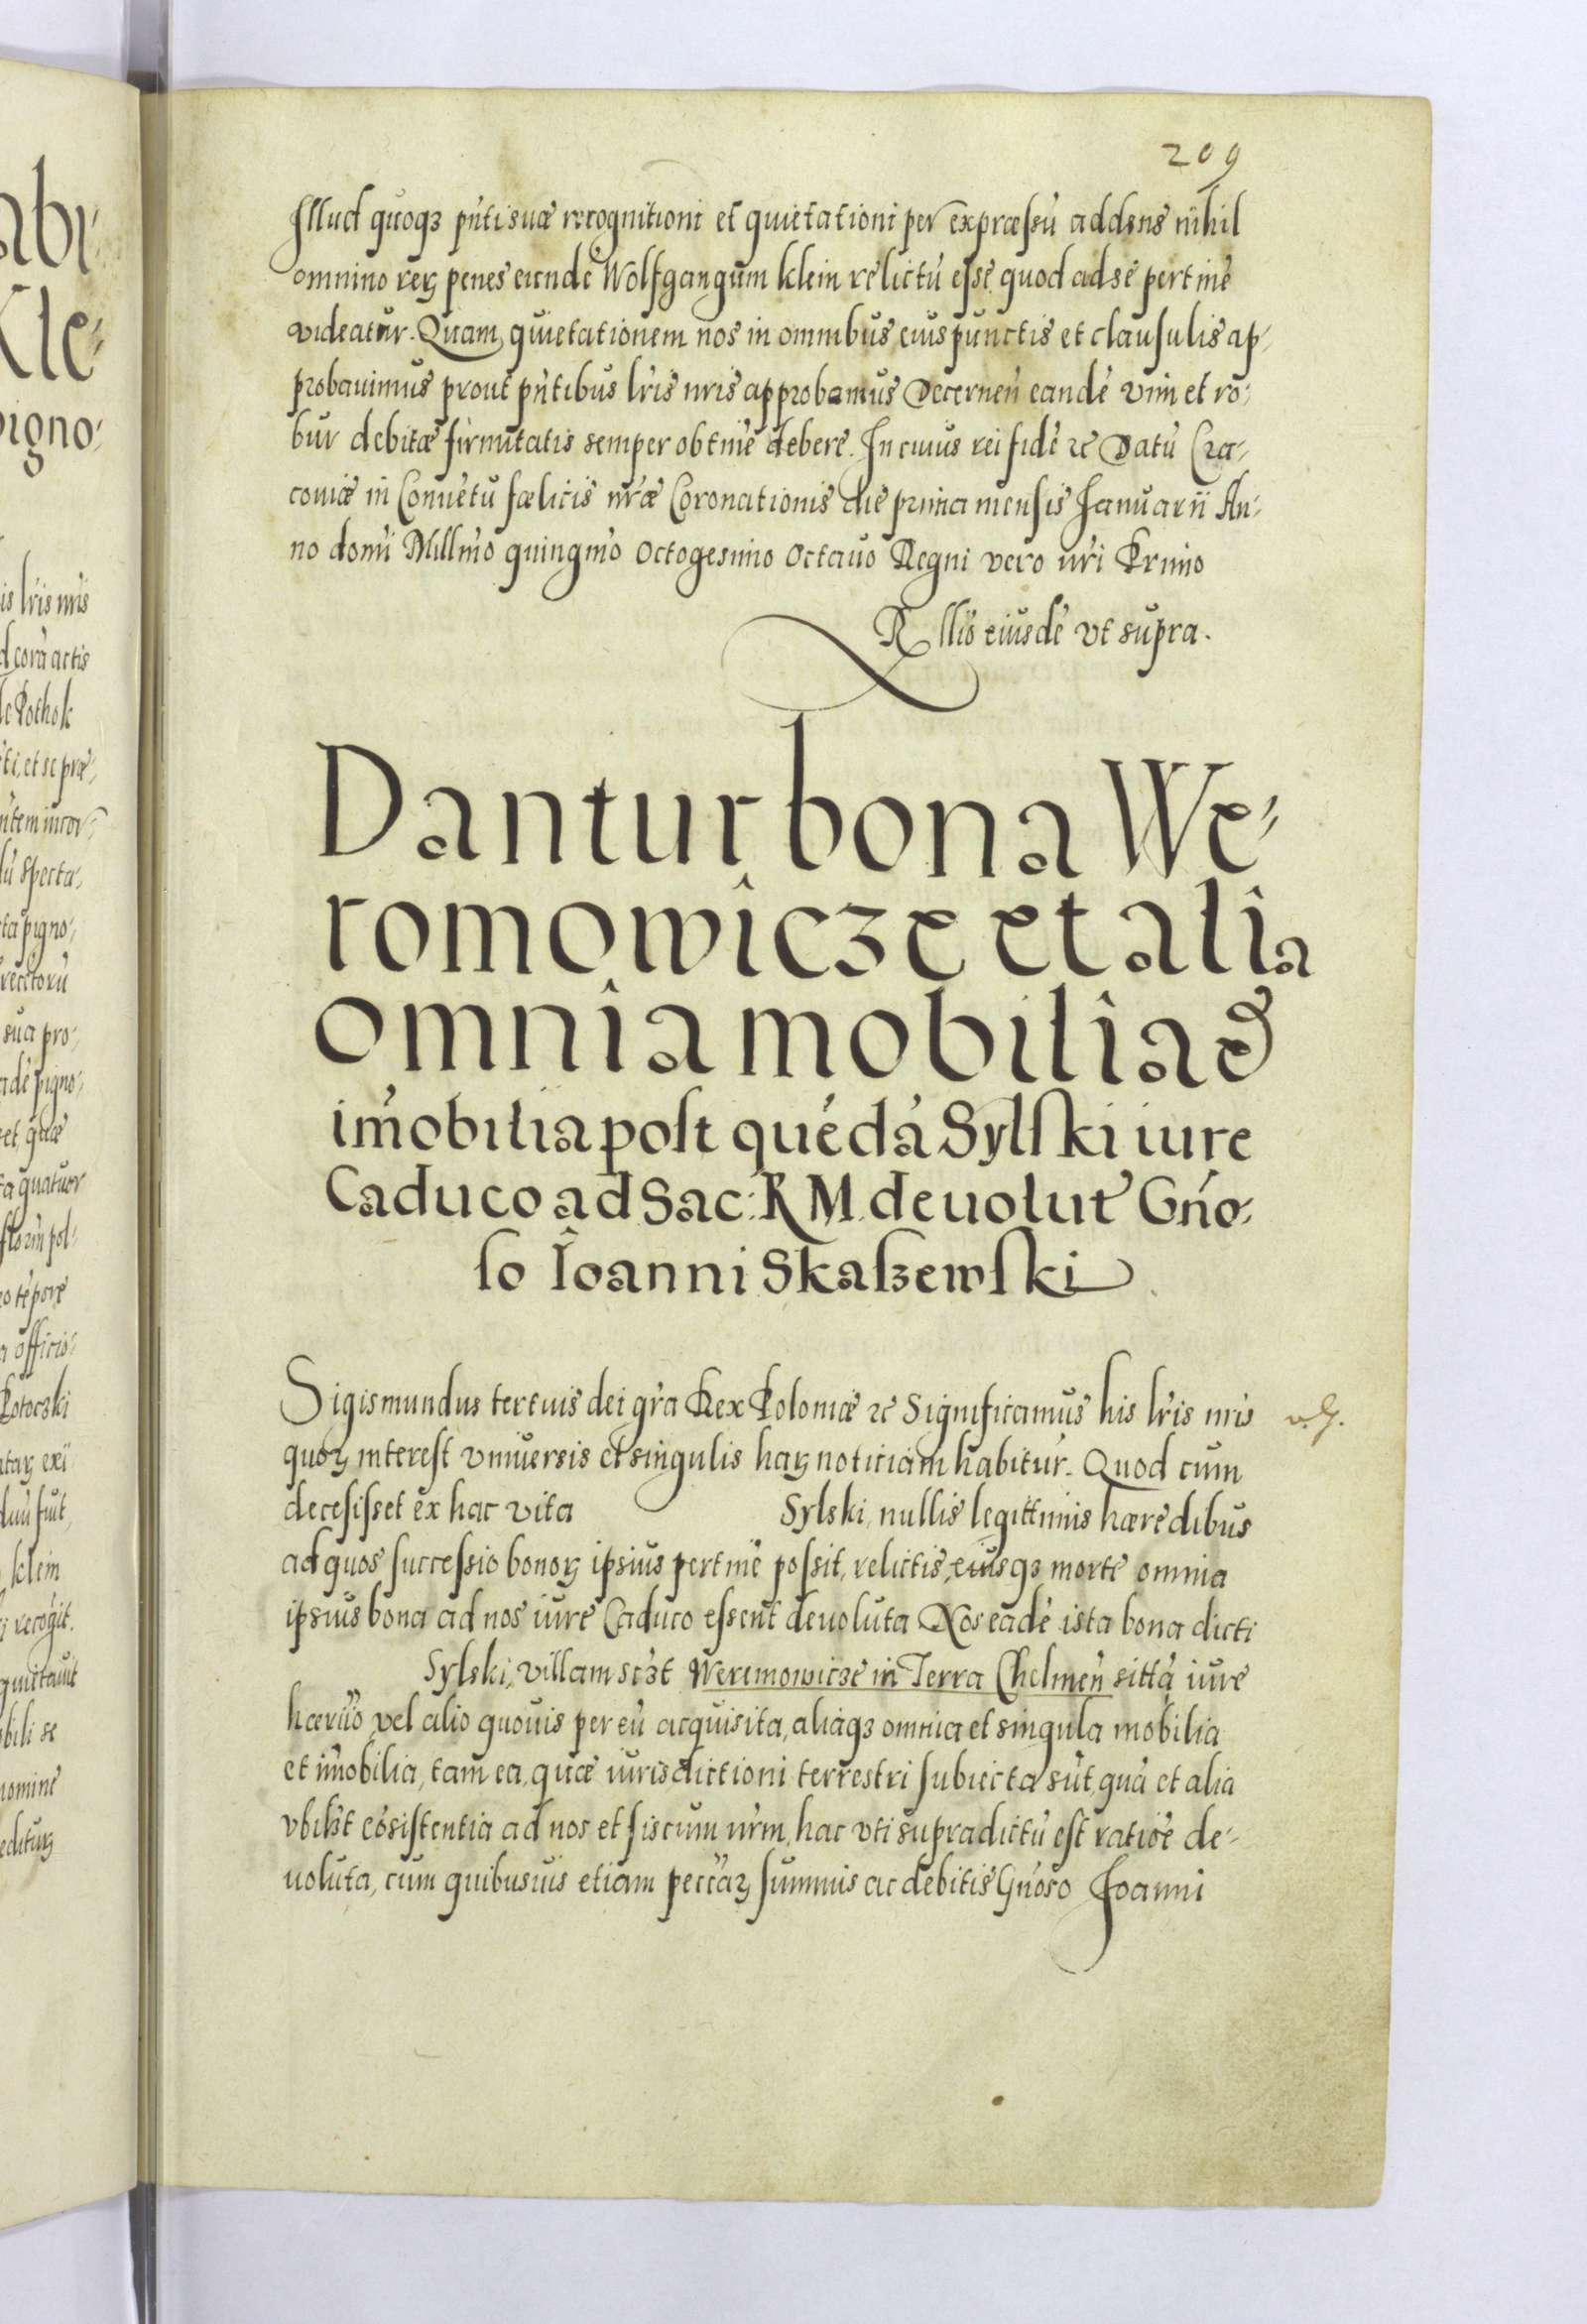 209
Illud quoqꝫ pńti suæ recognitioni et quietationi per expræssū addens nihil
omnino reꝝ penes eiundē Wolfgangum klein relictū esse quod ad se pertinē
videatur. Quam quietationem nos in omnibus eius punctis et clausulis ap-
probauimus prout pńtibus lr̄is nr̄is approbamus Decernen̄ eandē vim et ro-
bur debitæ firmitatis semper obtinē debere. In cuius rei fidē ꝛc Datū Cra-
couiæ in Conuētu fœlicis nr̄æ Coronationis die prima mensis Januarii An-
no domī Millm̄o quingm̄o Octogesimo Octauo Regni vero nr̄i Primo
Rello eiusdē vt supra.
Dantur bona We-
romowicze et alia
omnia mobilia &
im̄obilia post quēdā Sylski iure
Caduco ad Sac: R M. deuolut' Gńo-
so Ioanni Skaszewski
Sigismundus tertius dei gr̄a Rex Poloniæ ꝛc Significamus his lr̄is nr̄is
quoꝝ interest vniuersis et singulis haꝝ noticiam habitur̄. Quod cum
decesisset ex hac vita Sylski, nullis legittimis hæredibus
ad quos successio bonoꝝ ipsius pertinē possit, relictis, eiusqꝫ morte omnia
ipsius bona ad nos iure Caduco essent deuoluta Nos eadē ista bona dicti
Sylski, villam sczt Weremowicze in Terra Chelmen̄ sittā iure
hærīīo vel alio quouis per eū acquisita, aliaqꝫ omnia et singula mobilia
et im̄obilia, tam ea, quæ iurisdictioni terrestri subiecta sūt, quā et alia
vbilƺt cōsistentia ad nos et fiscum nr̄m, hac vti supradictū est ratiōe de-
uoluta, cum quibusuis etiam peccāꝝ summis ac debitis Gńoso Joanni